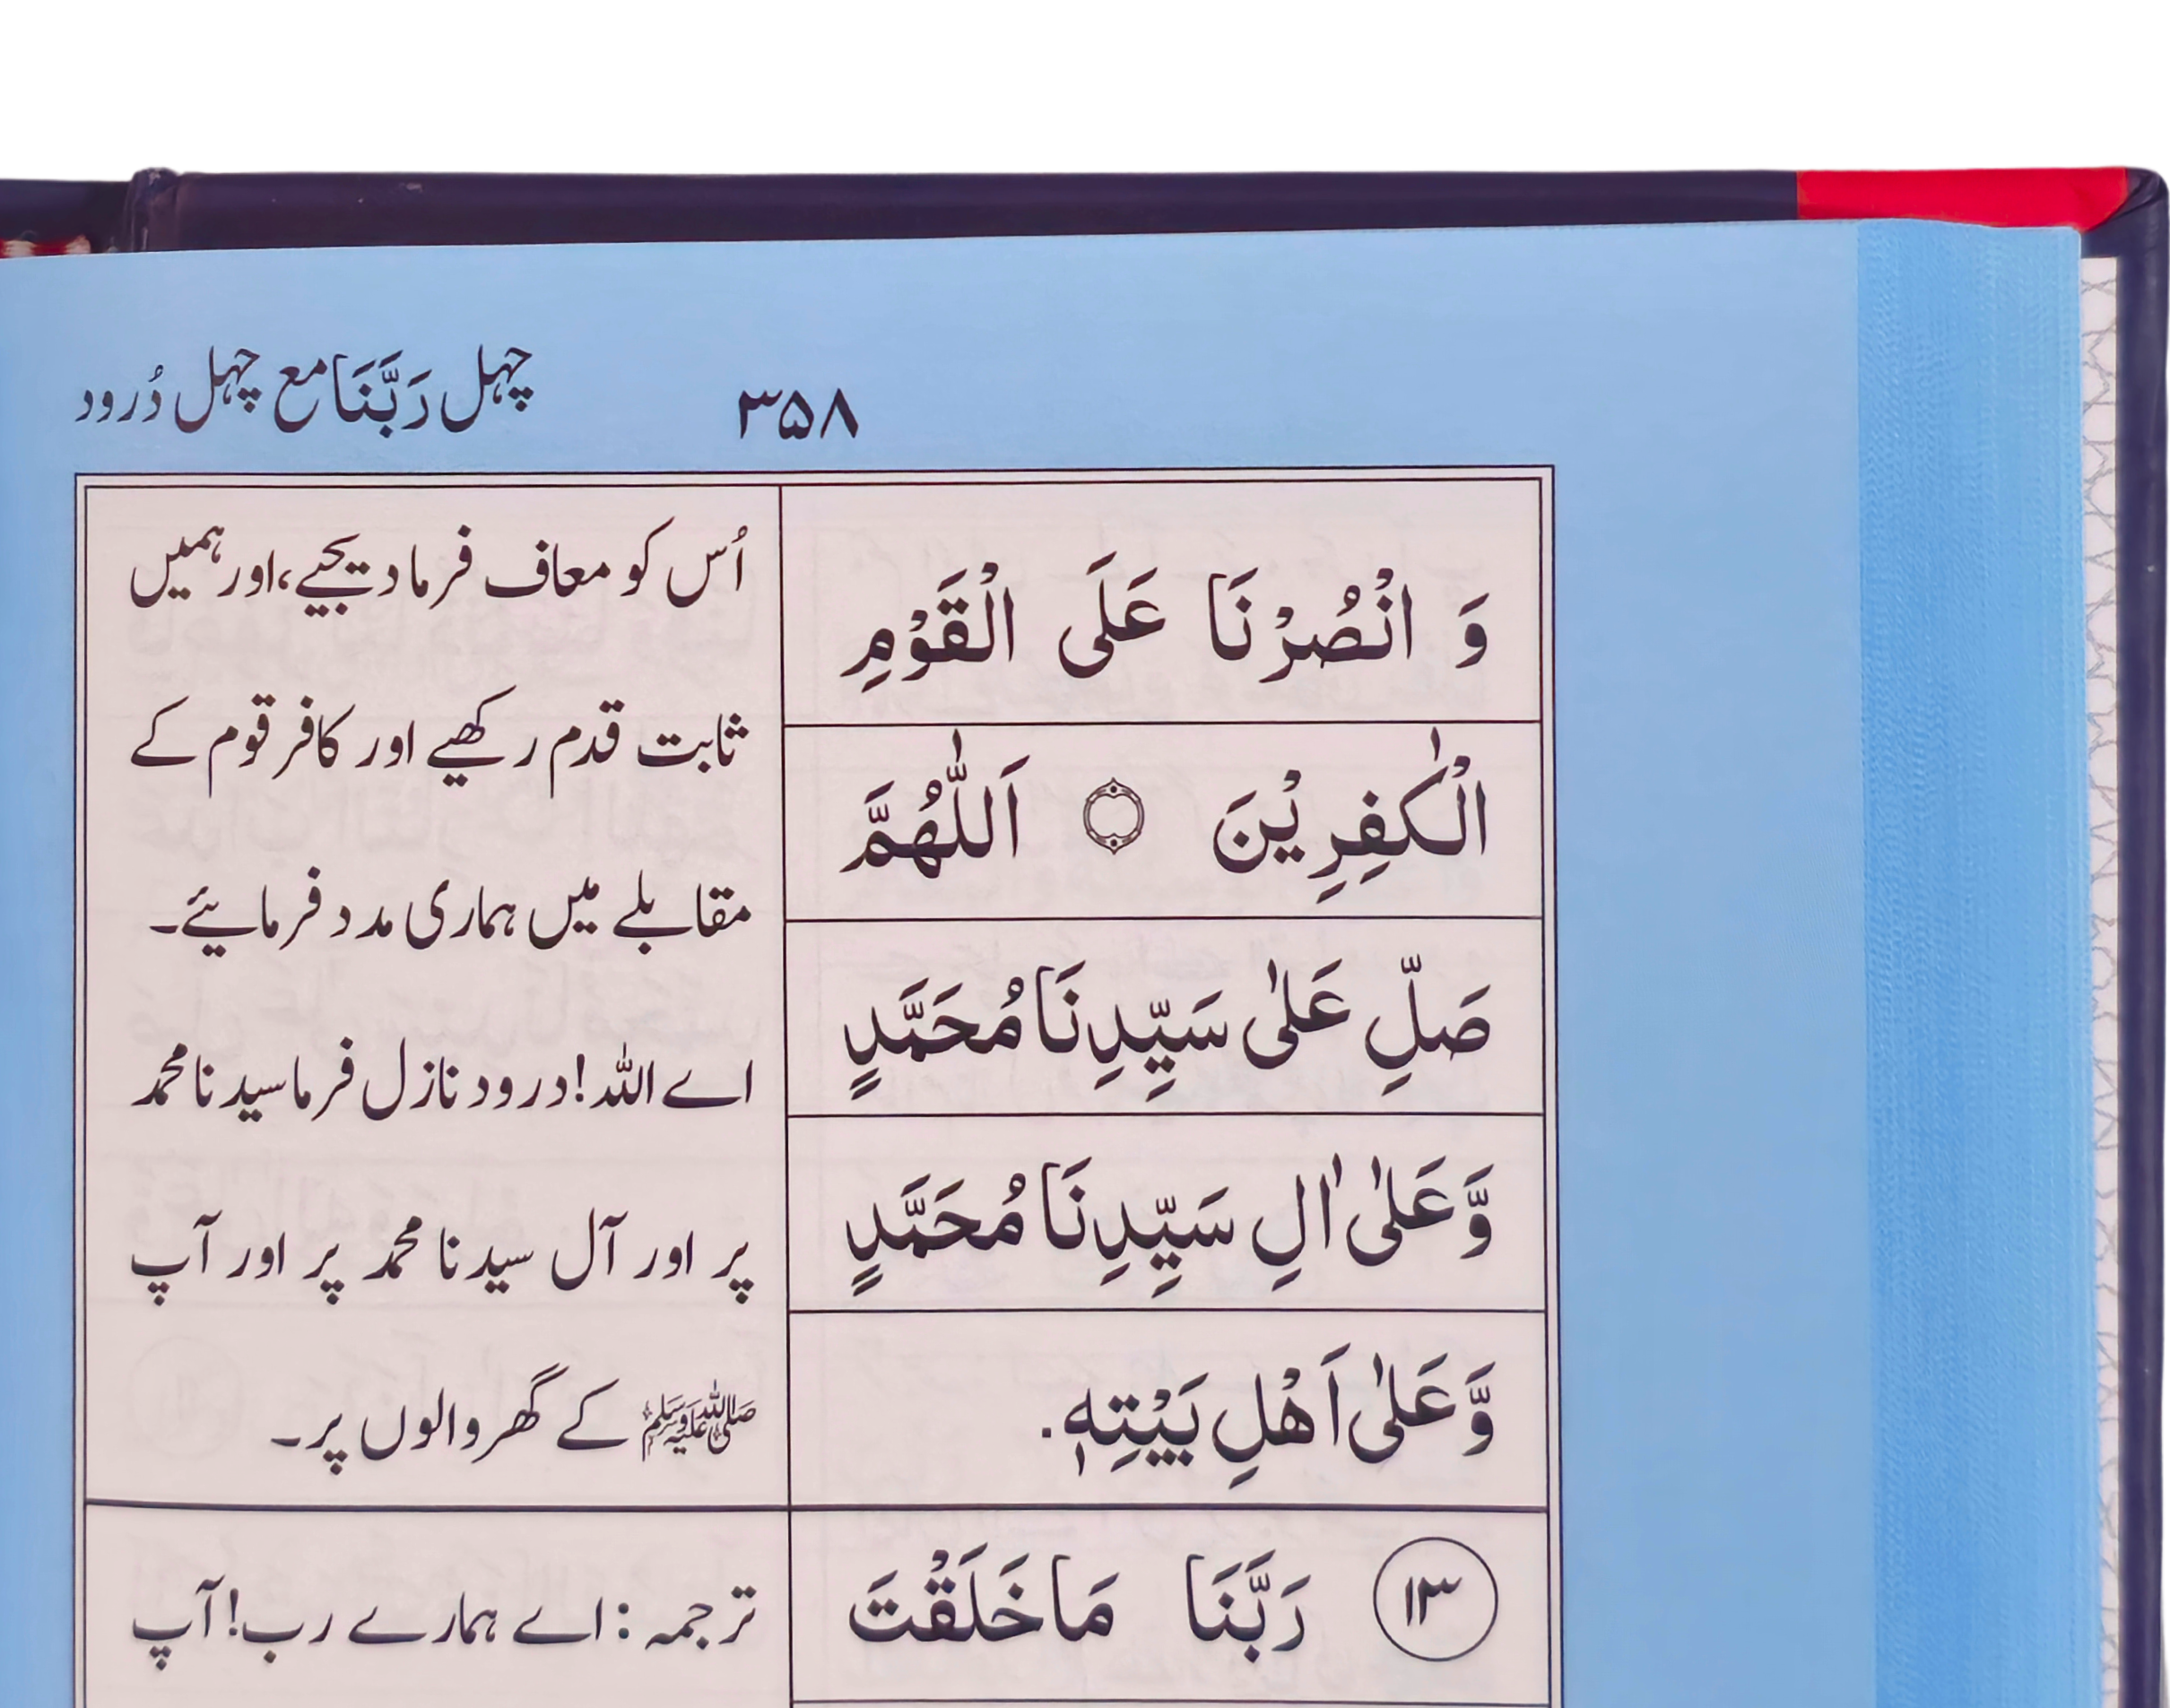 ۳۵۸
چہل رَبَّنَا مع چہل دُرود
وَ انْصُرْنَا عَلَی الْقَوْمِ
الْکٰفِرِیْنَ ۝ اَللّٰهُمَّ
صَلِّ عَلٰی سَیِّدِنَا مُحَمَّدٍ
وَّعَلٰۤی اٰلِ سَیِّدِنَا مُحَمَّدٍ
وَّعَلٰۤی اَهْلِ بَیْتِهٖ.
۱۳ رَبَّنَا مَا خَلَقْتَ
اُس کو معاف فرما دیجیے، اور ہمیں
ثابت قدم رکھیے اور کافر قوم کے
مقابلے میں ہماری مدد فرمایئے۔
اے اللہ! درود نازل فرما سیدنا محمد
پر اور آل سیدنا محمد پر اور آپ
ﷺ کے گھر والوں پر۔
ترجمہ: اے ہمارے رب! آپ